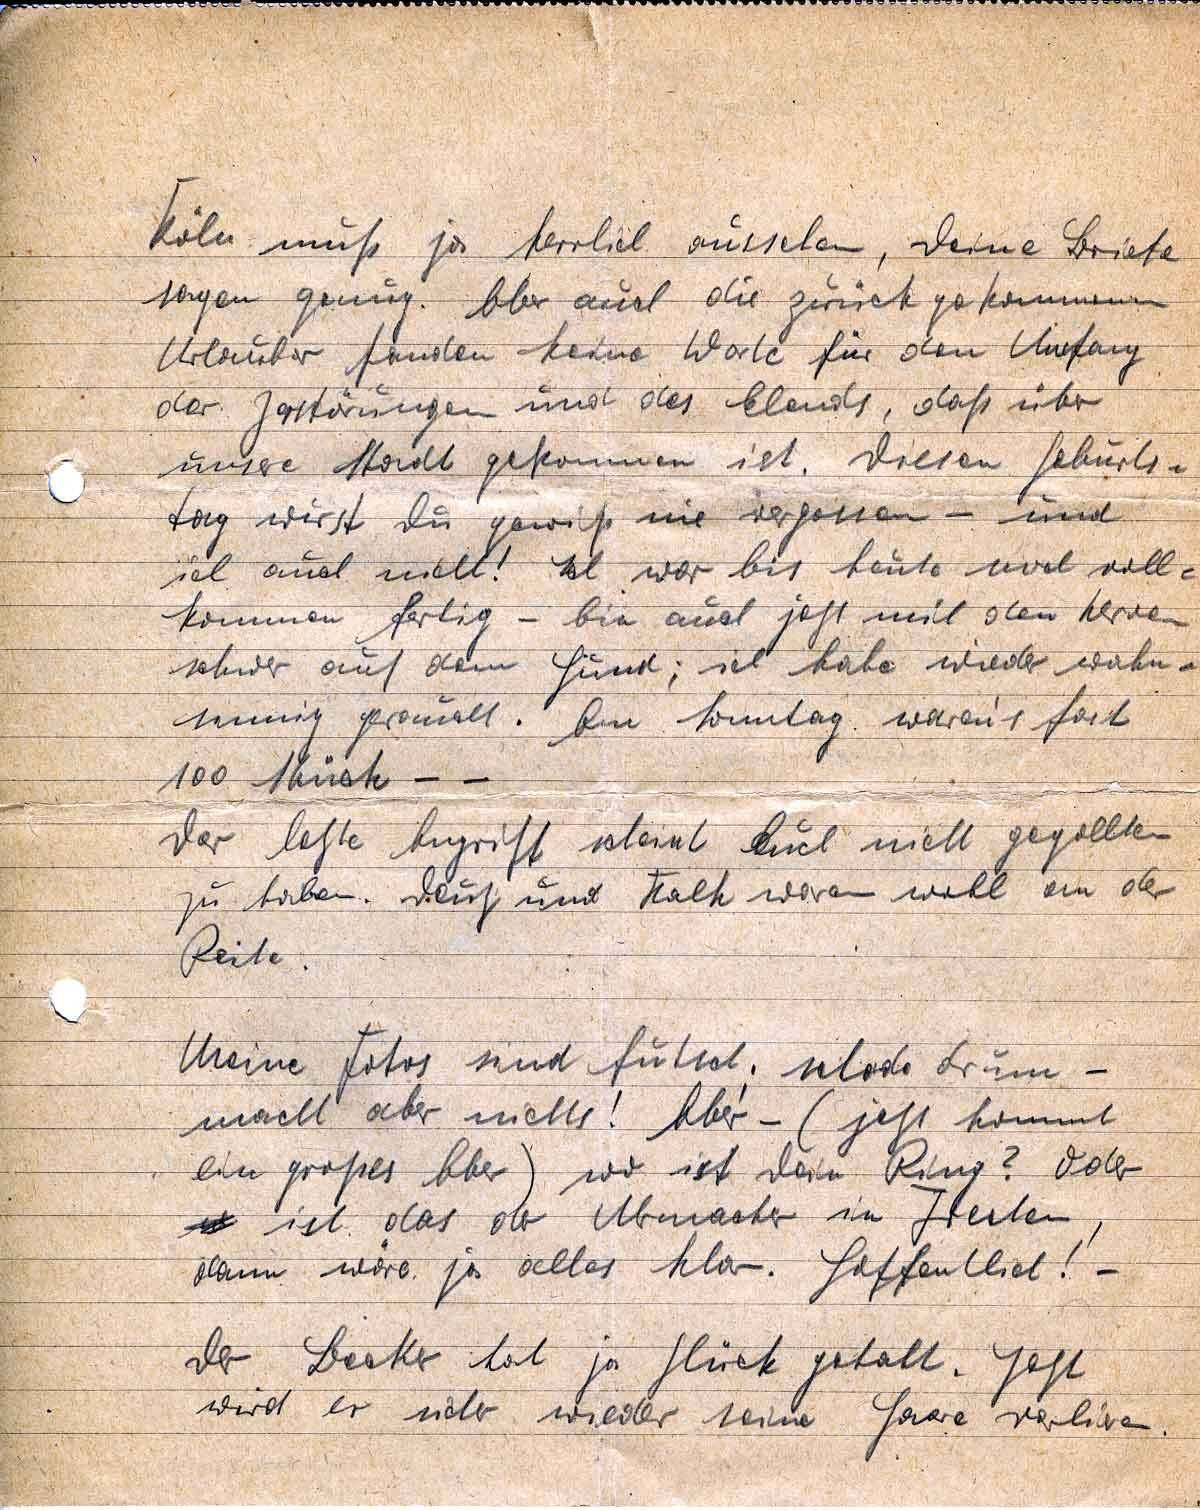 Köln muß ja herrlich aussehen, Deine Briefe
sagen genug. Aber auch die zurückgekommenen
Urlauber fanden keine Worte für den Umfang
der Zerstörungen und des Elends, daß über
unsere Stadt gekommen ist. Diesen Geburts-
tag wirst Du gewiß nie vergessen – und
ich auch nicht! Ich war bis heute noch voll-
kommen fertig – bin auch jetzt mit den Nerven
schwer auf dem Hund; ich habe wieder wahn-
sinnig geraucht. Am Sonntag waren's fast
100 Stück – –
Der letzte Angriff scheint Euch nicht gegollten
zu haben. Deutz und Kalk waren wohl an der
Reihe.
Meine Fotos sind futsch, schade drum –
macht aber nichts! Aber – (jetzt kommt
ein großes Aber) wo ist Dein Ring? Oder
ist das der Uhrmacher in Frechen,
dann wäre ja alles klar. Hoffentlich! –
Der Becker hat ja Glück gehabt. Jetzt
wird er sicher wieder seine Haare verlieren.